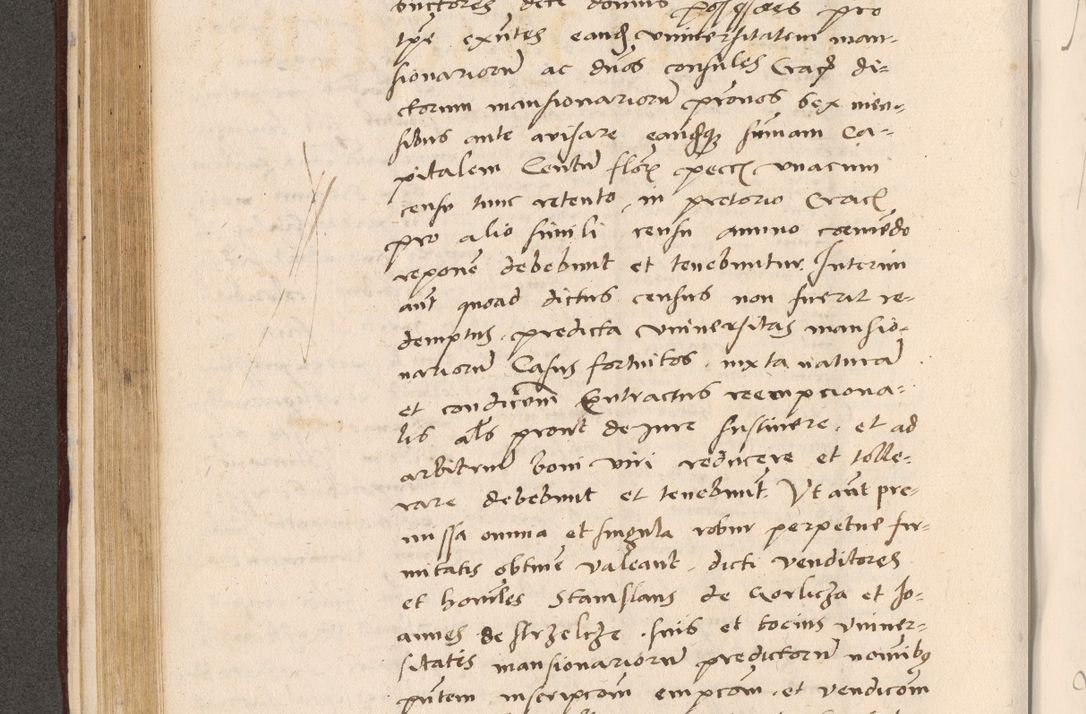 ductores dicte domus possessores pro
tpe exntes eandē universitatem man-
sionariorū ac dnos consules Crac̄ di-
ctorum mansionariorū pronos sex men-
sibus ante avisare eandēq₃ sūmam Ca-
pitalem Centū flor̄ pecc̄ unacum
censu tunc retento, in pretorio Crac̄
pro alio simili censu annuo coemēdo
reponē debebunt et tenebuntur. Interim
aūt quoad dictus census non fuerit re-
demptus, predicta universitas mansio-
nariorū Casus fortuitos, iuxta naturā
et condic̄onem Contractus reempciona-
lis als prout de iure sustinere, et ad
arbitriū boni viri reducere et tolle-
rare debebunt et tenebunt. Ut aūt pre-
missa omnia et singula robur perpetue fir-
mitatis obtinē valeant, dicti venditores
et honīles Stanislaus de Gorlicza et Jo-
annes de strzelcze, suis et tocius univer-
sitatis mansionariorū predictorū nomib₉
pn̄tem inscripcōm empcōm, et vendicōm